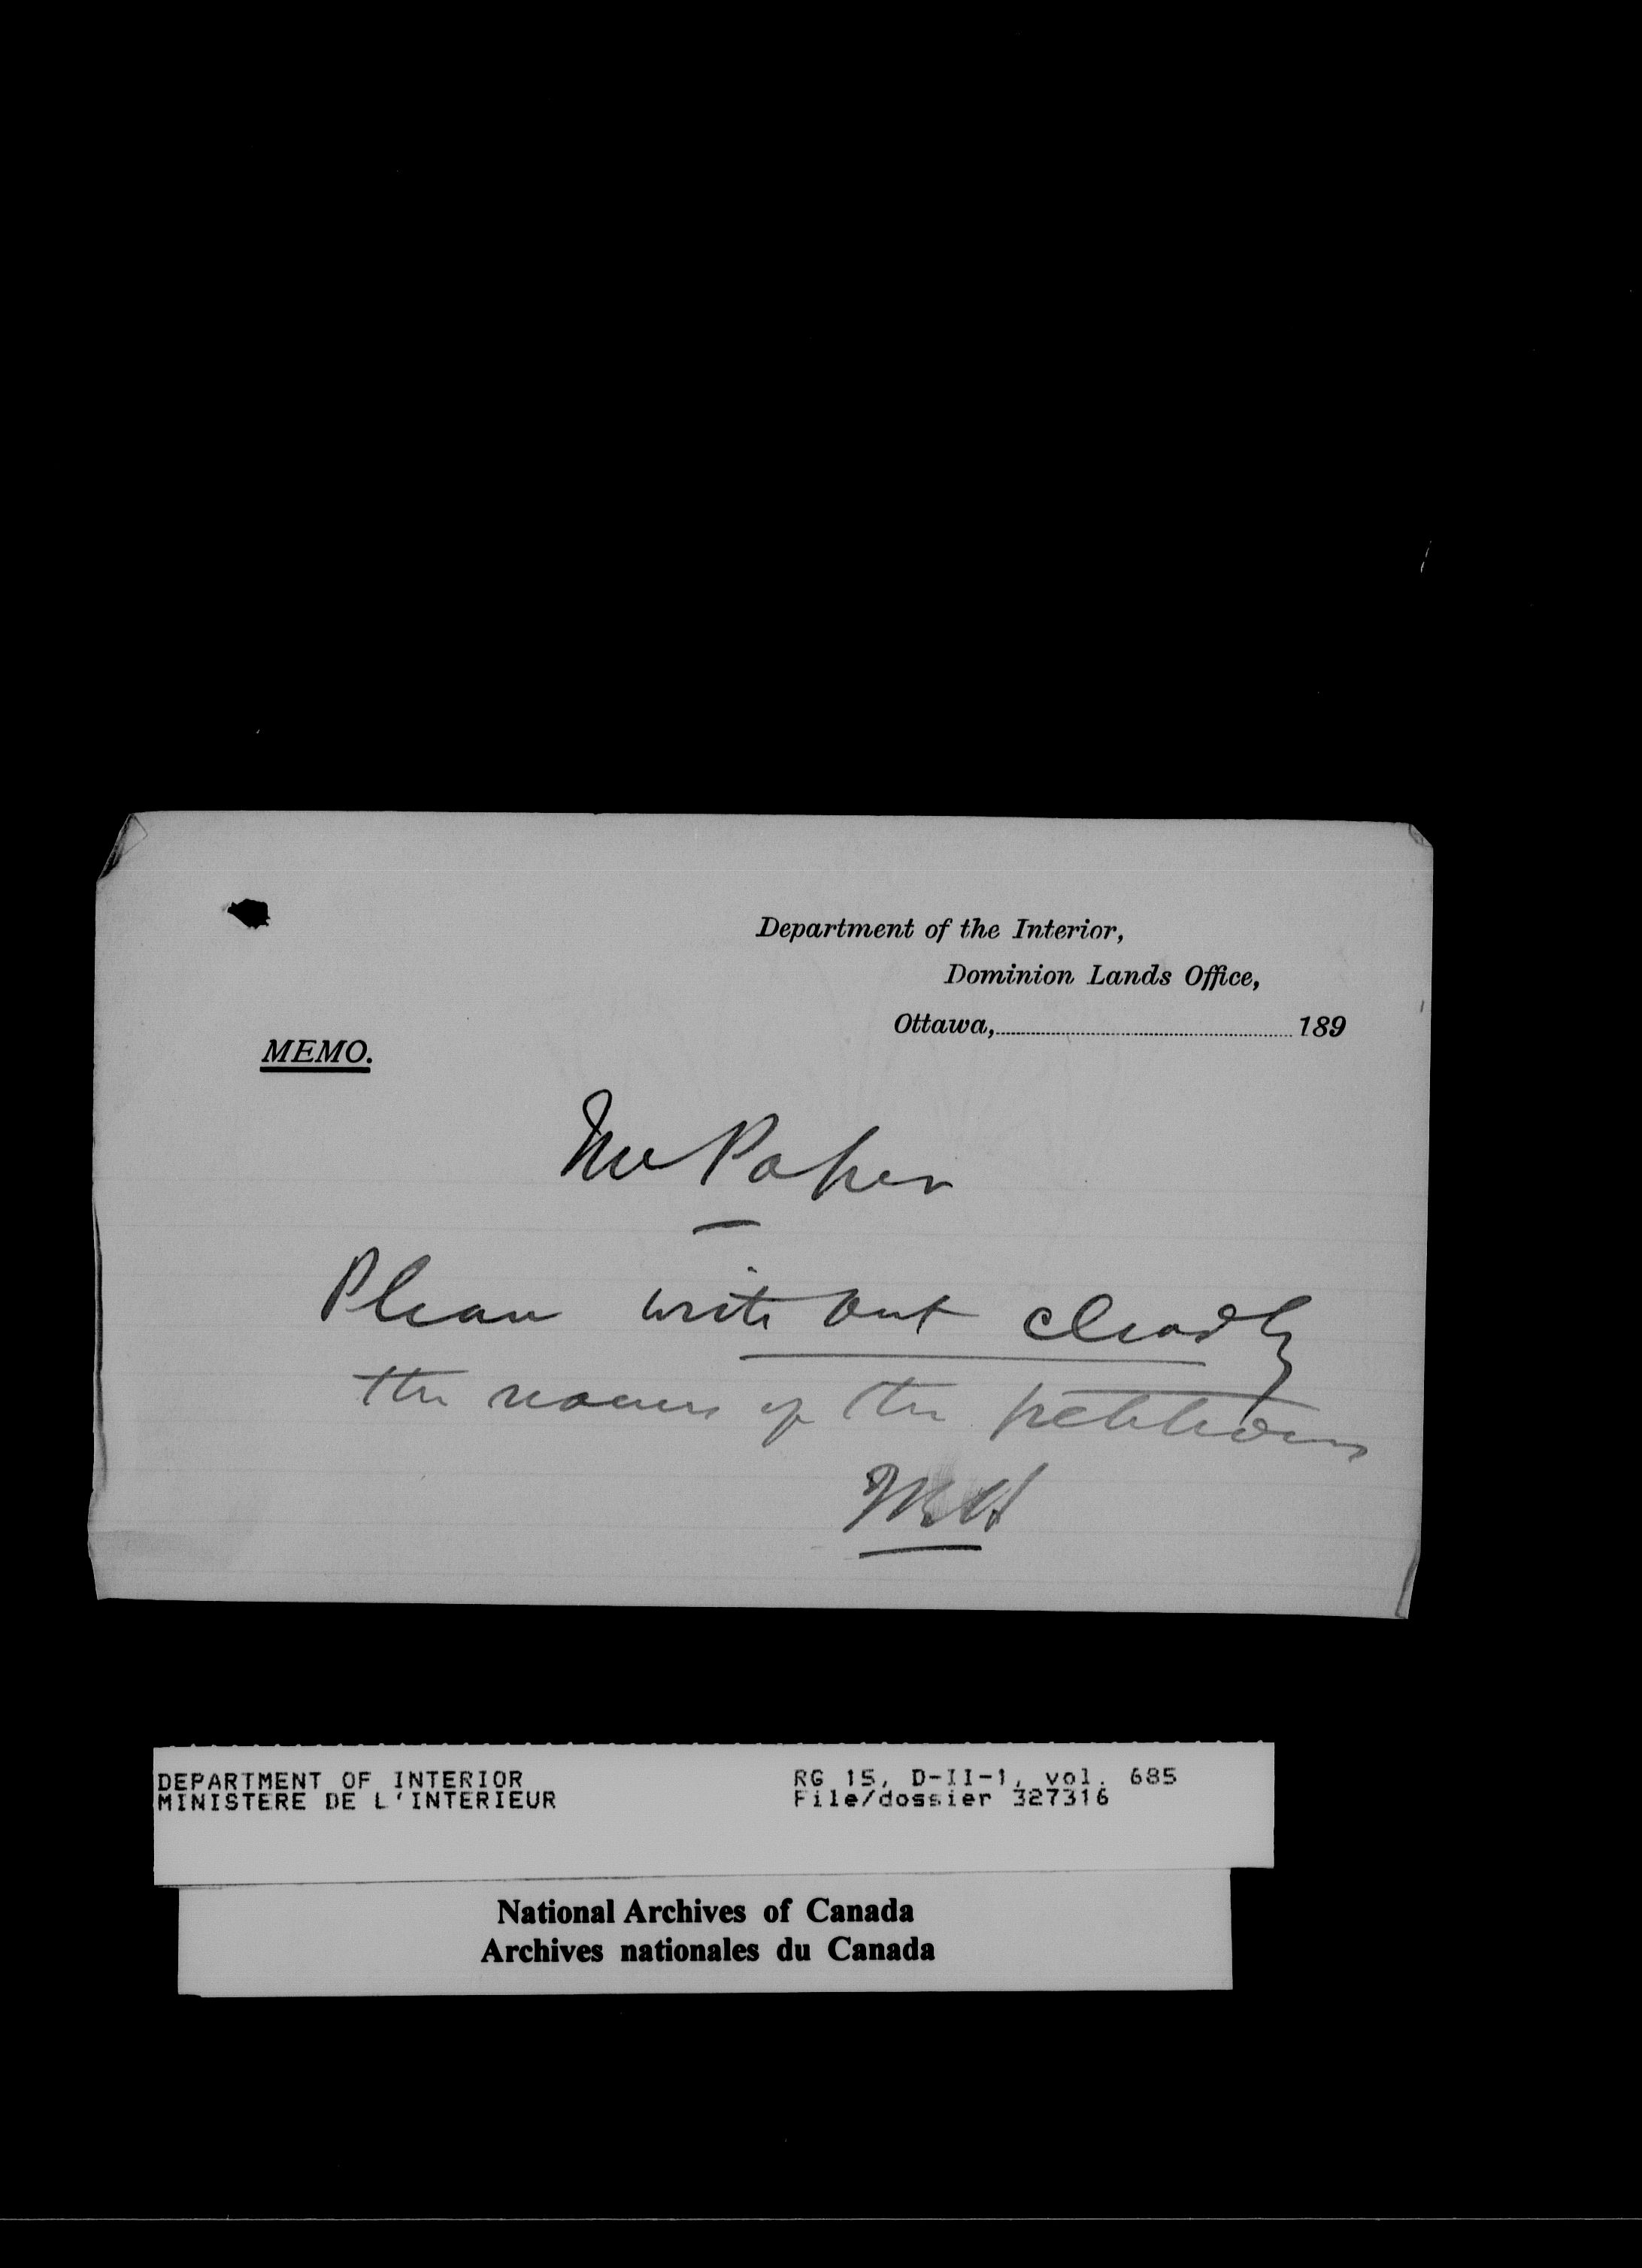 Department of the Interior,
Dominion Lands Office,
Ottawa, 189
MEMO.
Mr
Please write out clearly
the names of the petitioners
MH
DEPARTMENT OF INTERIOR
MINISTERE DE L'INTERIEUR
RG 15, D-II-1, vol. 685
File/dossier 327316
National Archives of Canada
Archives nationales du Canada